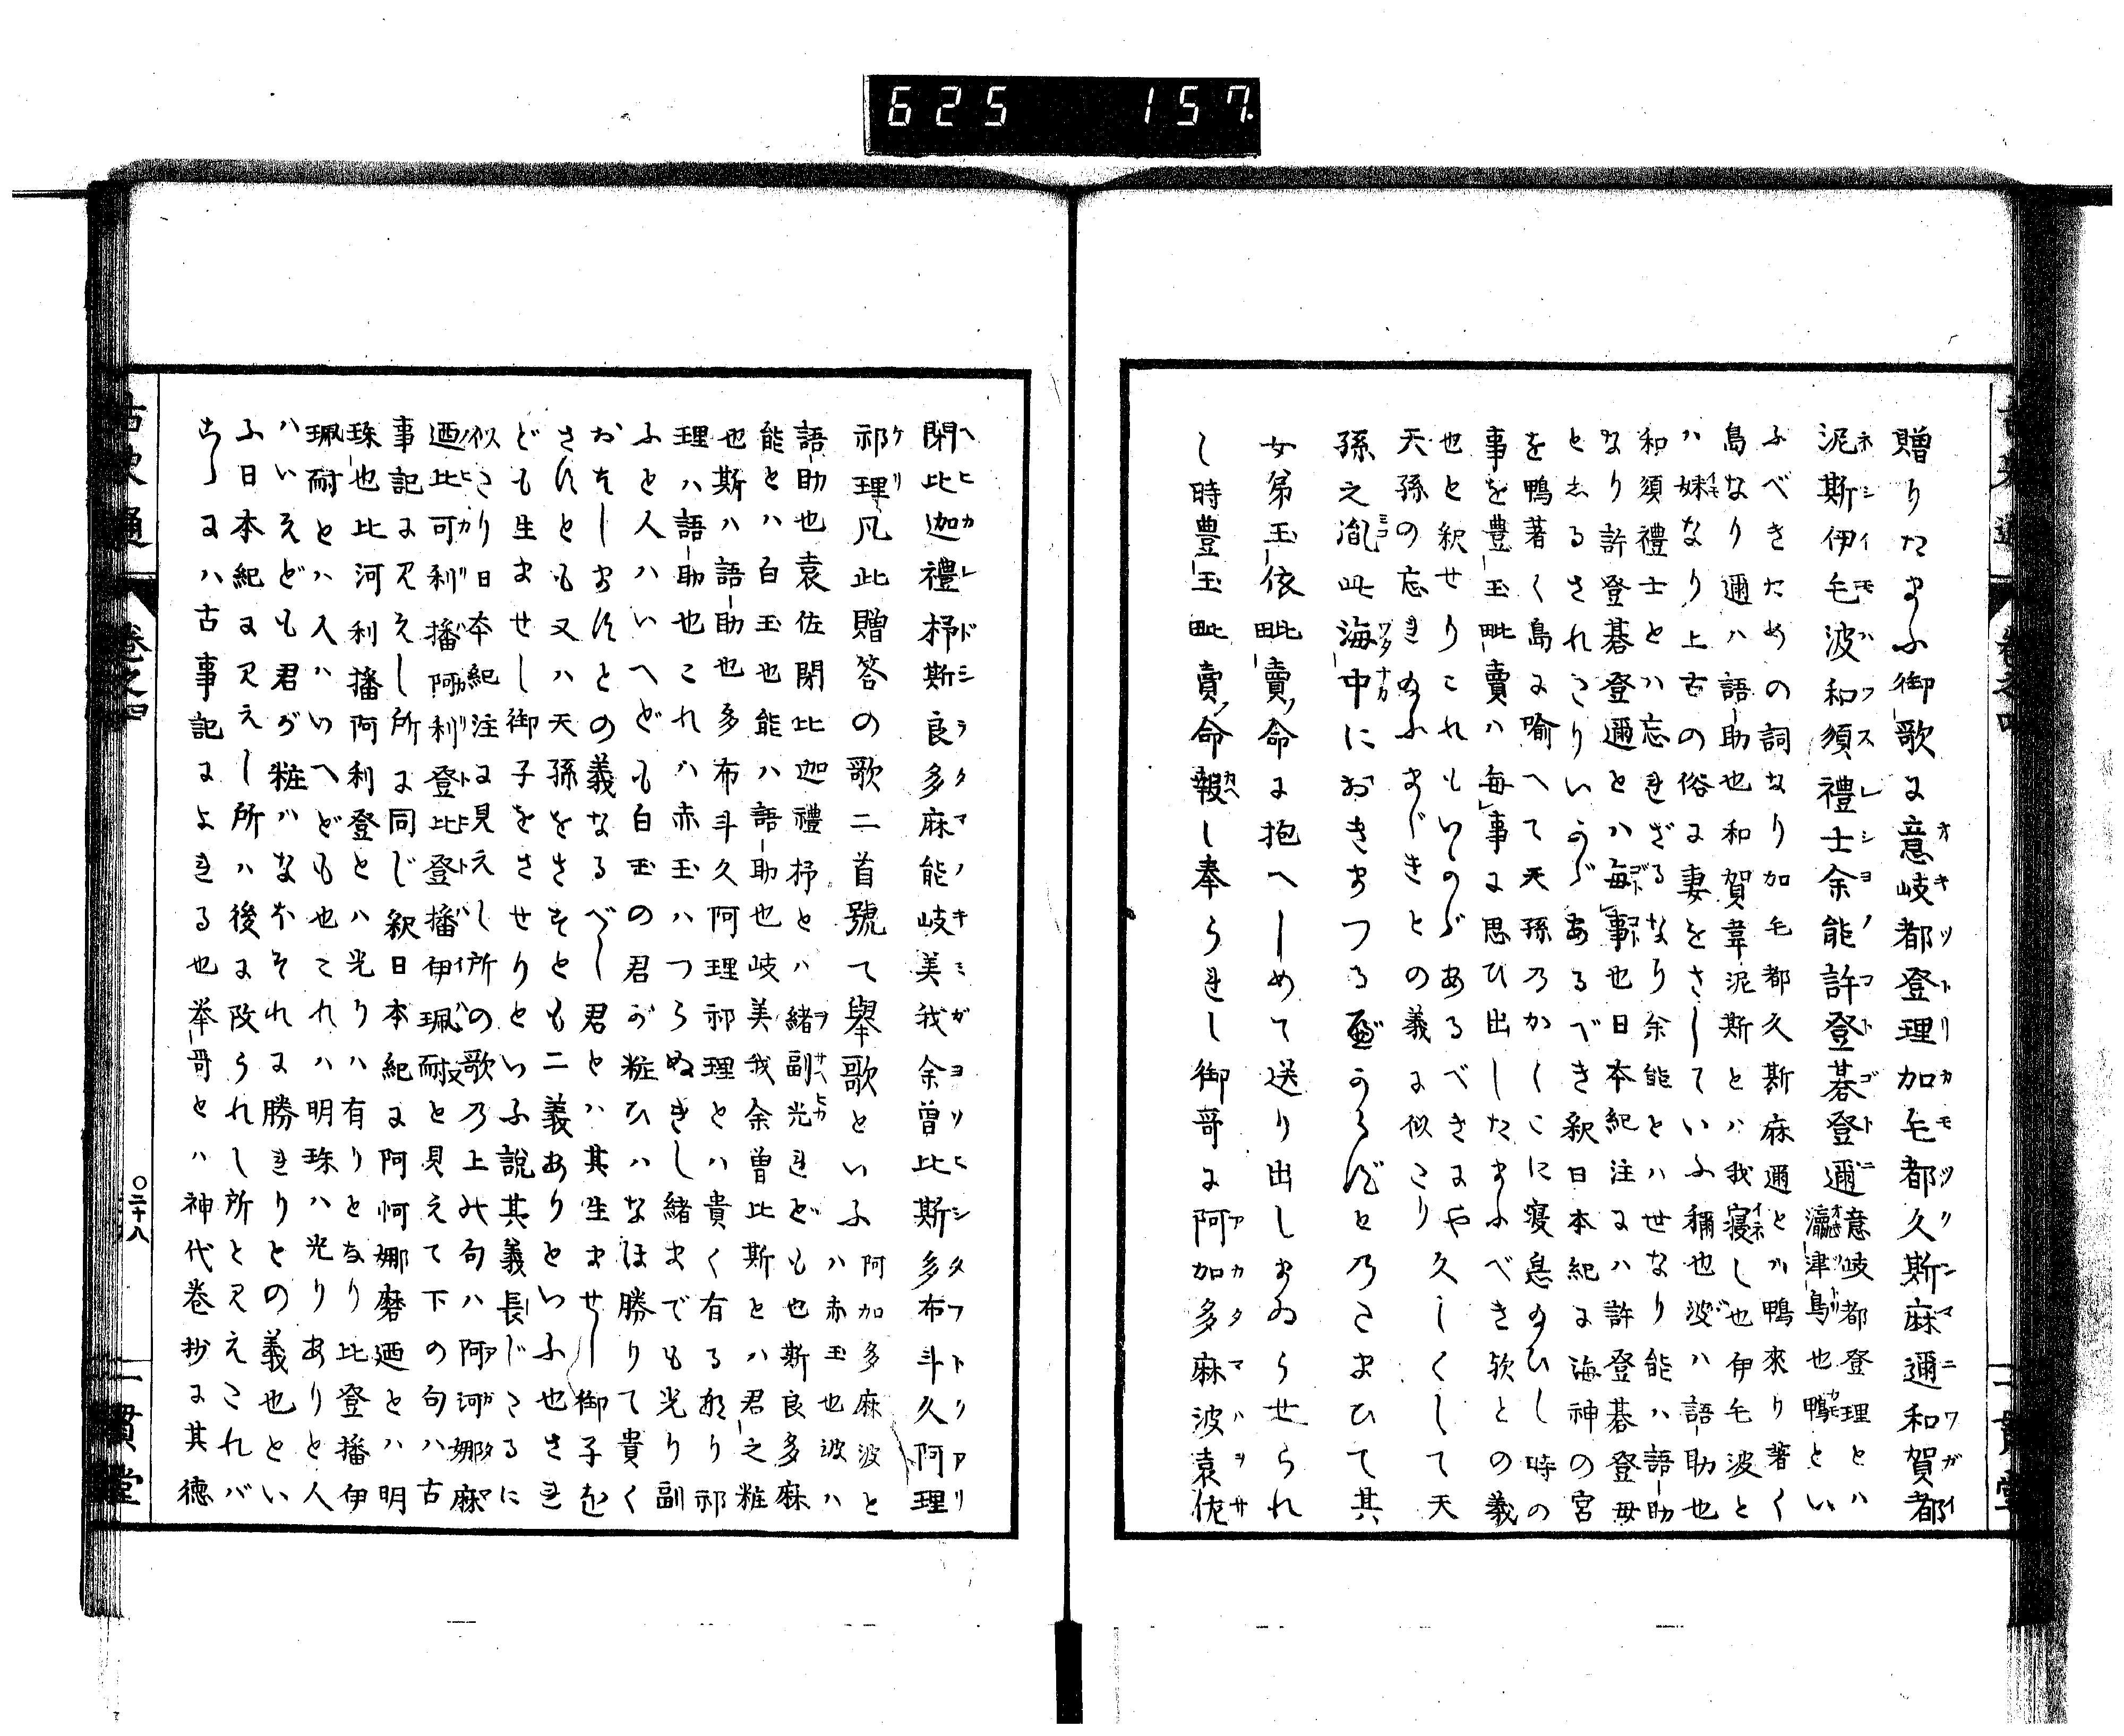 625 157
贈りたまふ御歌に意岐都登理加毛都久斯麻邇和賀韋
泥斯伊毛波和須禮士余能許登碁登邇意岐都登理とハ
瀛津鳥也鴨とい
ふべきための詞なり加毛都久斯麻邇とハ鴨來り著く
島なり邇ハ語助也和賀韋泥斯とハ我寝し也伊毛波と
ハ妹なり上古の俗に妻をさしていふ稱也波ハ語助也
和須禮士とハ忘れざるなり余能とハ世なり能ハ語助
なり許登碁登邇とハ毎事也日本紀注にハ許登碁登毋
としるされたりいかゞあるべき釈日本紀に海神の宮
を鴨著く島に喩へて天孫乃かくこに寝息まひし時の
事を豊玉毗賣ハ毎事に思ひ出したまふべき欤との義
也と釈せりこれもいかゞあるべきにや久しくして天
天孫の忘れまふまじきとの義に似たり
孫之胤此海中におきまつる可らずと乃たまひて其
女弟玉依毗賣命に抱へしめて送り出しまゐらせられ
し時豊玉毗賣命報し奉られし御哥に阿加多麻波袁佐
閇比迦禮杼斯良多麻能岐美我余曽比斯多布斗久阿理
祁理凡此贈答の歌二首號て擧歌といふ阿加多麻波と
ハ赤玉也波ハ
語助也袁佐閇比迦禮杼とハ緒副光れども也斯良多麻
能とハ白玉也能ハ語助也岐美我余曽比斯とハ君之粧
也斯ハ語助也多布斗久阿理祁理とハ貴く有るなり祁
理ハ語助也これハ赤玉ハつらぬきし緒までも光り副
ふと人ハいへども白玉の君が粧ひハなほ勝りて貴く
おをしますとの義なるべし君とハ其生ませし御子を
さすとも又ハ天孫をさすとも二義ありといふ也され
ども生ませし御子をさせりといふ説其義長じたるに
似たり日本紀注に見えし所の歌乃上の句ハ阿河娜麻
迺比可利播阿利登比登播伊珮耐と見えて下の句ハ古
事記に見えし所に同じ釈日本紀に阿河娜磨迺とハ明
珠也比河利播阿利登とハ光りハ有りとなり比登播伊
珮耐とハ人ハいへども也これハ明珠ハ光りありと人
ハいえども君が粧ハなおそれに勝れりとの義也とい
ふ日本紀に見えし所ハ後に改られし所と見えこれバ
こゝにハ古事記によれる也挙哥とハ神代巻抄に其徳
古史通 巻之四 〇二十八 一貫堂